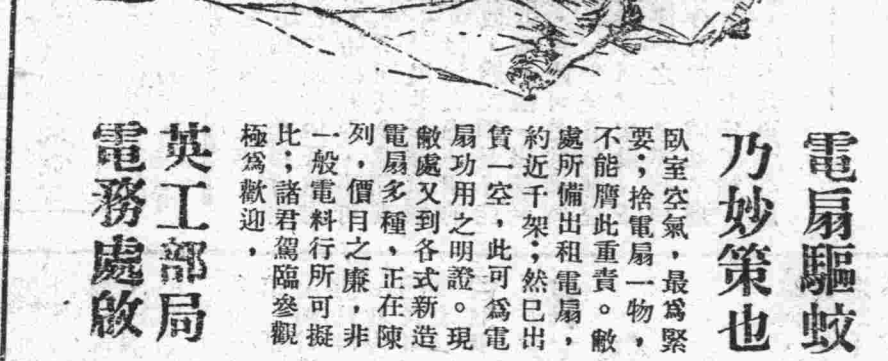 電扇驅蚊
乃妙策也
臥室空氣，最爲緊
要；捨電扇一物，
不能膺此重責。敝
處所備出租電扇，
約近千架；然已出
賃一空，此可爲電
扇功用之明證。現
敝處又到各式新造
電扇多種，正在陳
列，價目之廉，非
一般電料行所可擬
比；諸君駕臨參觀
極爲歡迎，
英工部局
電務處啟